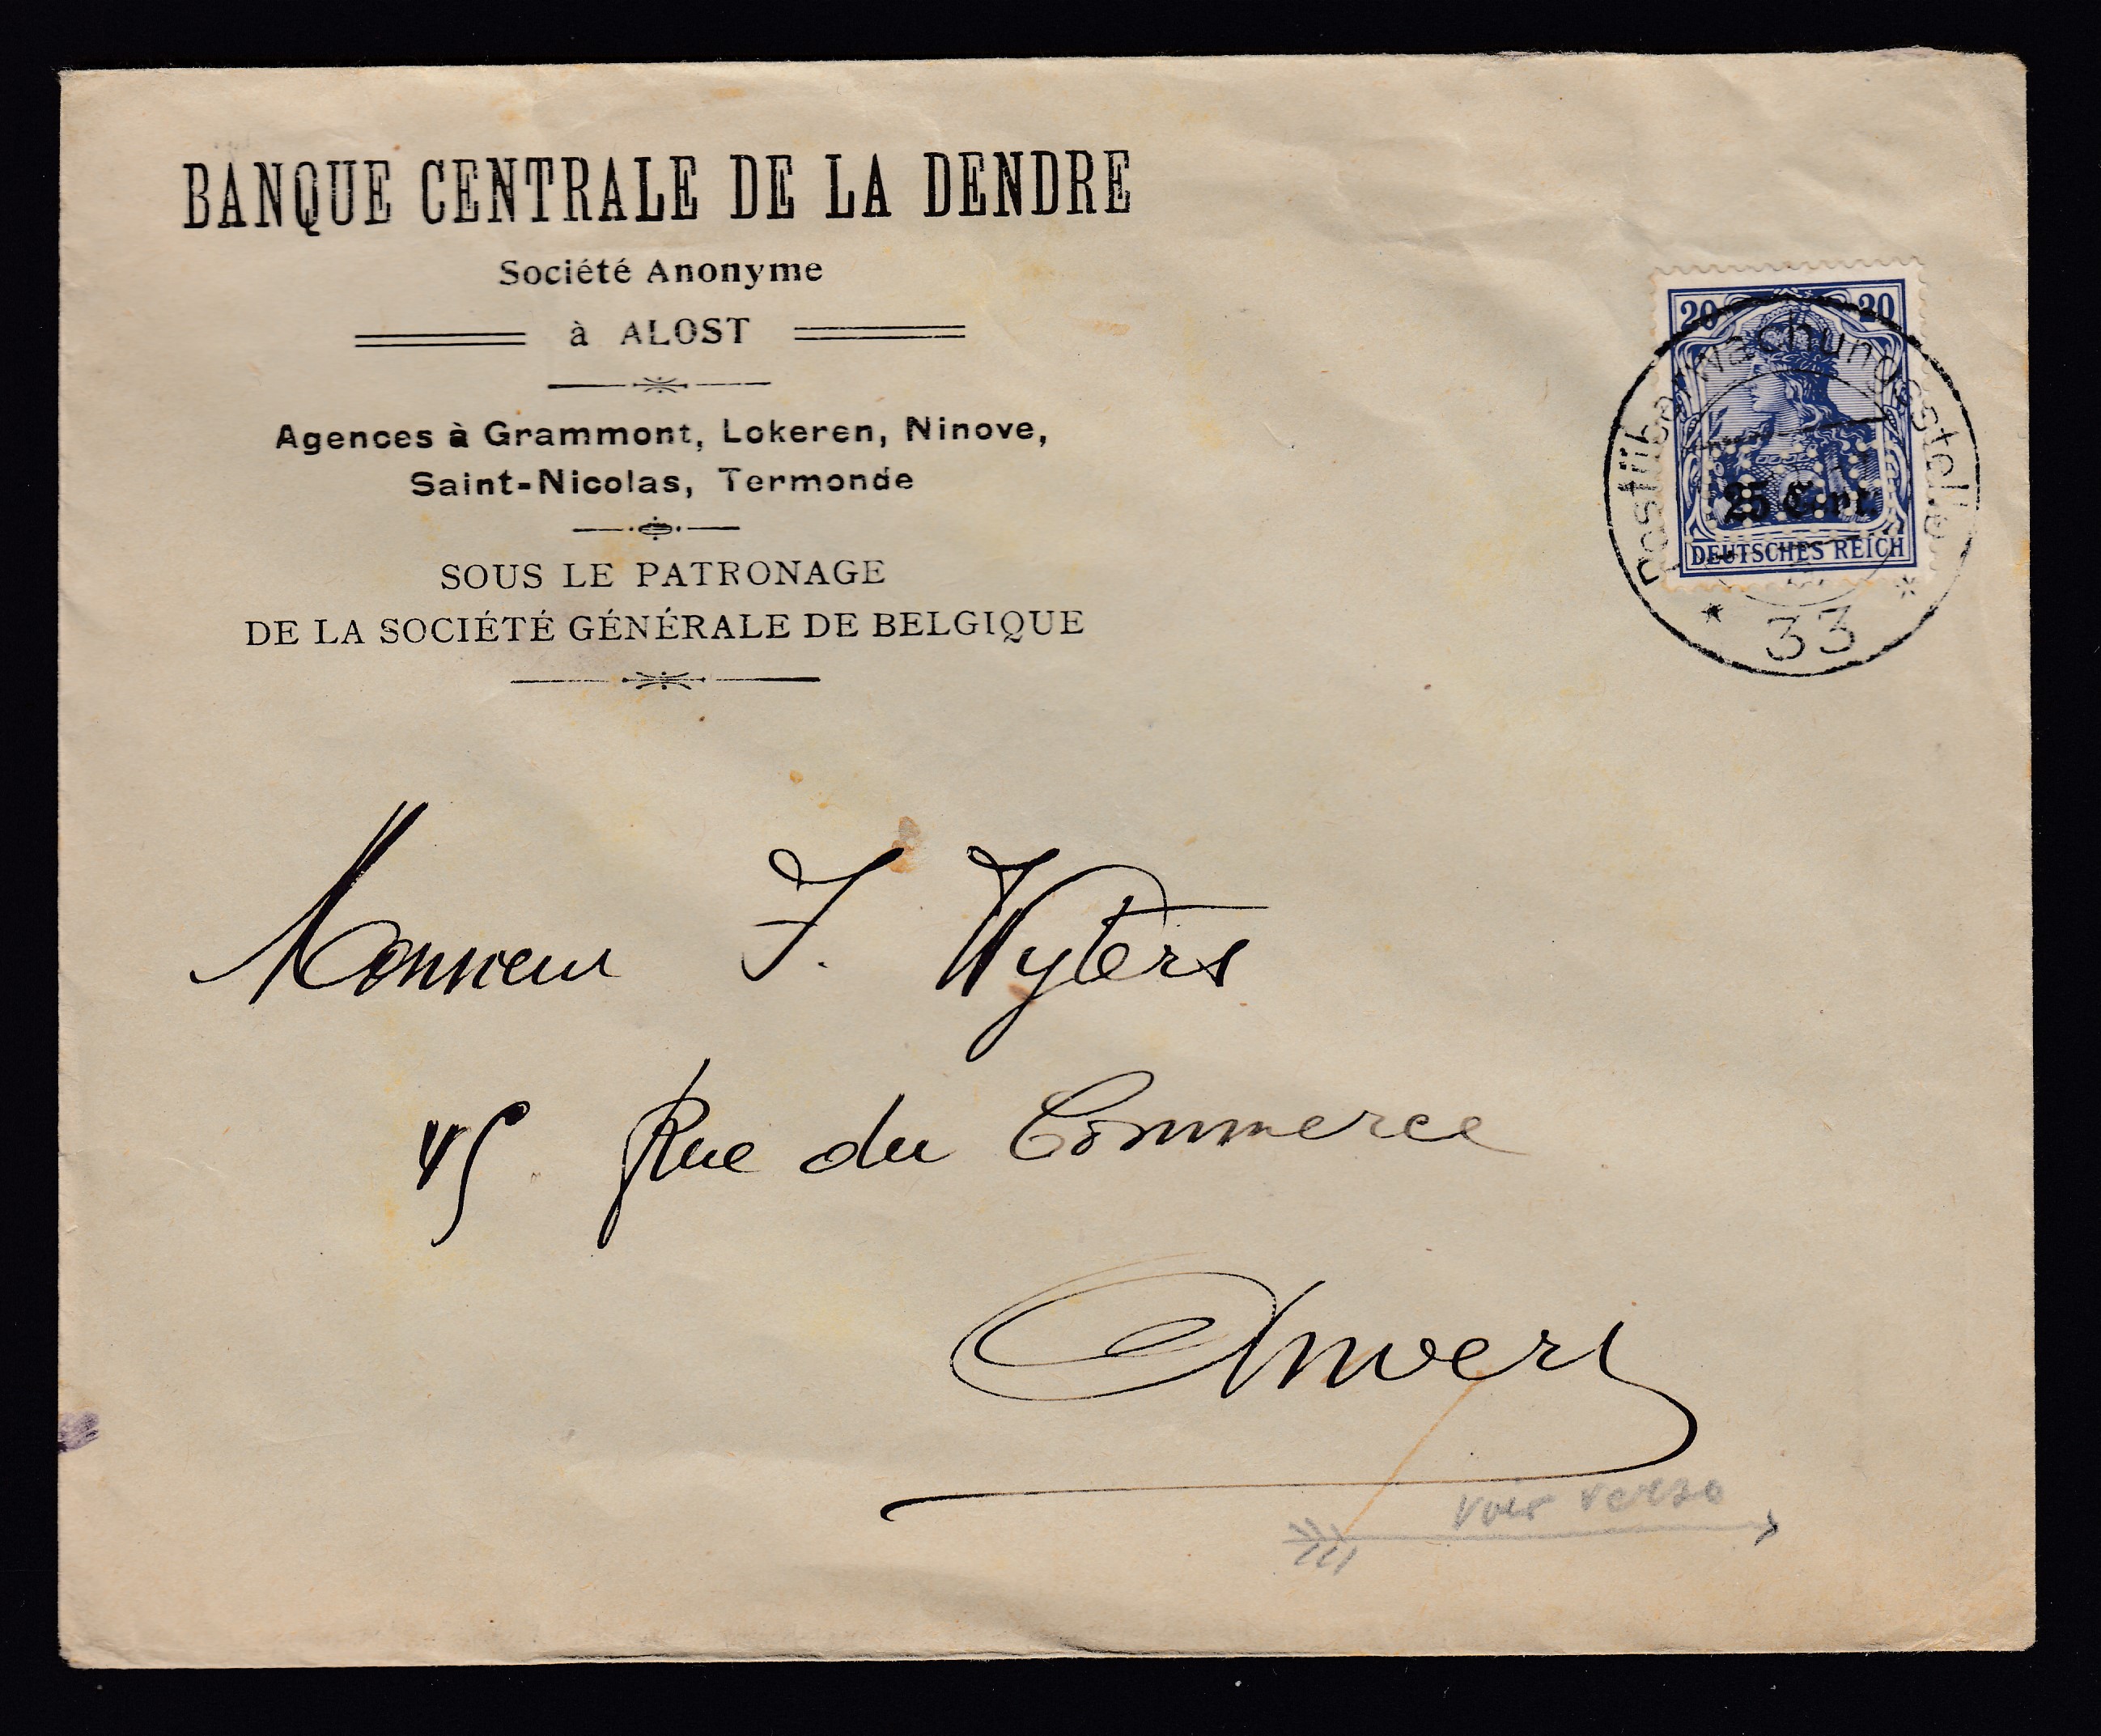 BANQUE CENTRALE DE LA DENDRE
Société Anonyme
à ALOST
Agences à Grammont, Lokeren, Ninove,
Saint-Nicolas, Termonde
SOUS LE PATRONAGE
DE LA SOCIÉTÉ GÉNÉRALE DE BELGIQUE
20 20
25 Cent.
DEUTSCHES REICH
Postüberwachungsstelle
* 33 *
Monsieur J. Wyters
45 Rue du Commerce
Anvers
voir verso